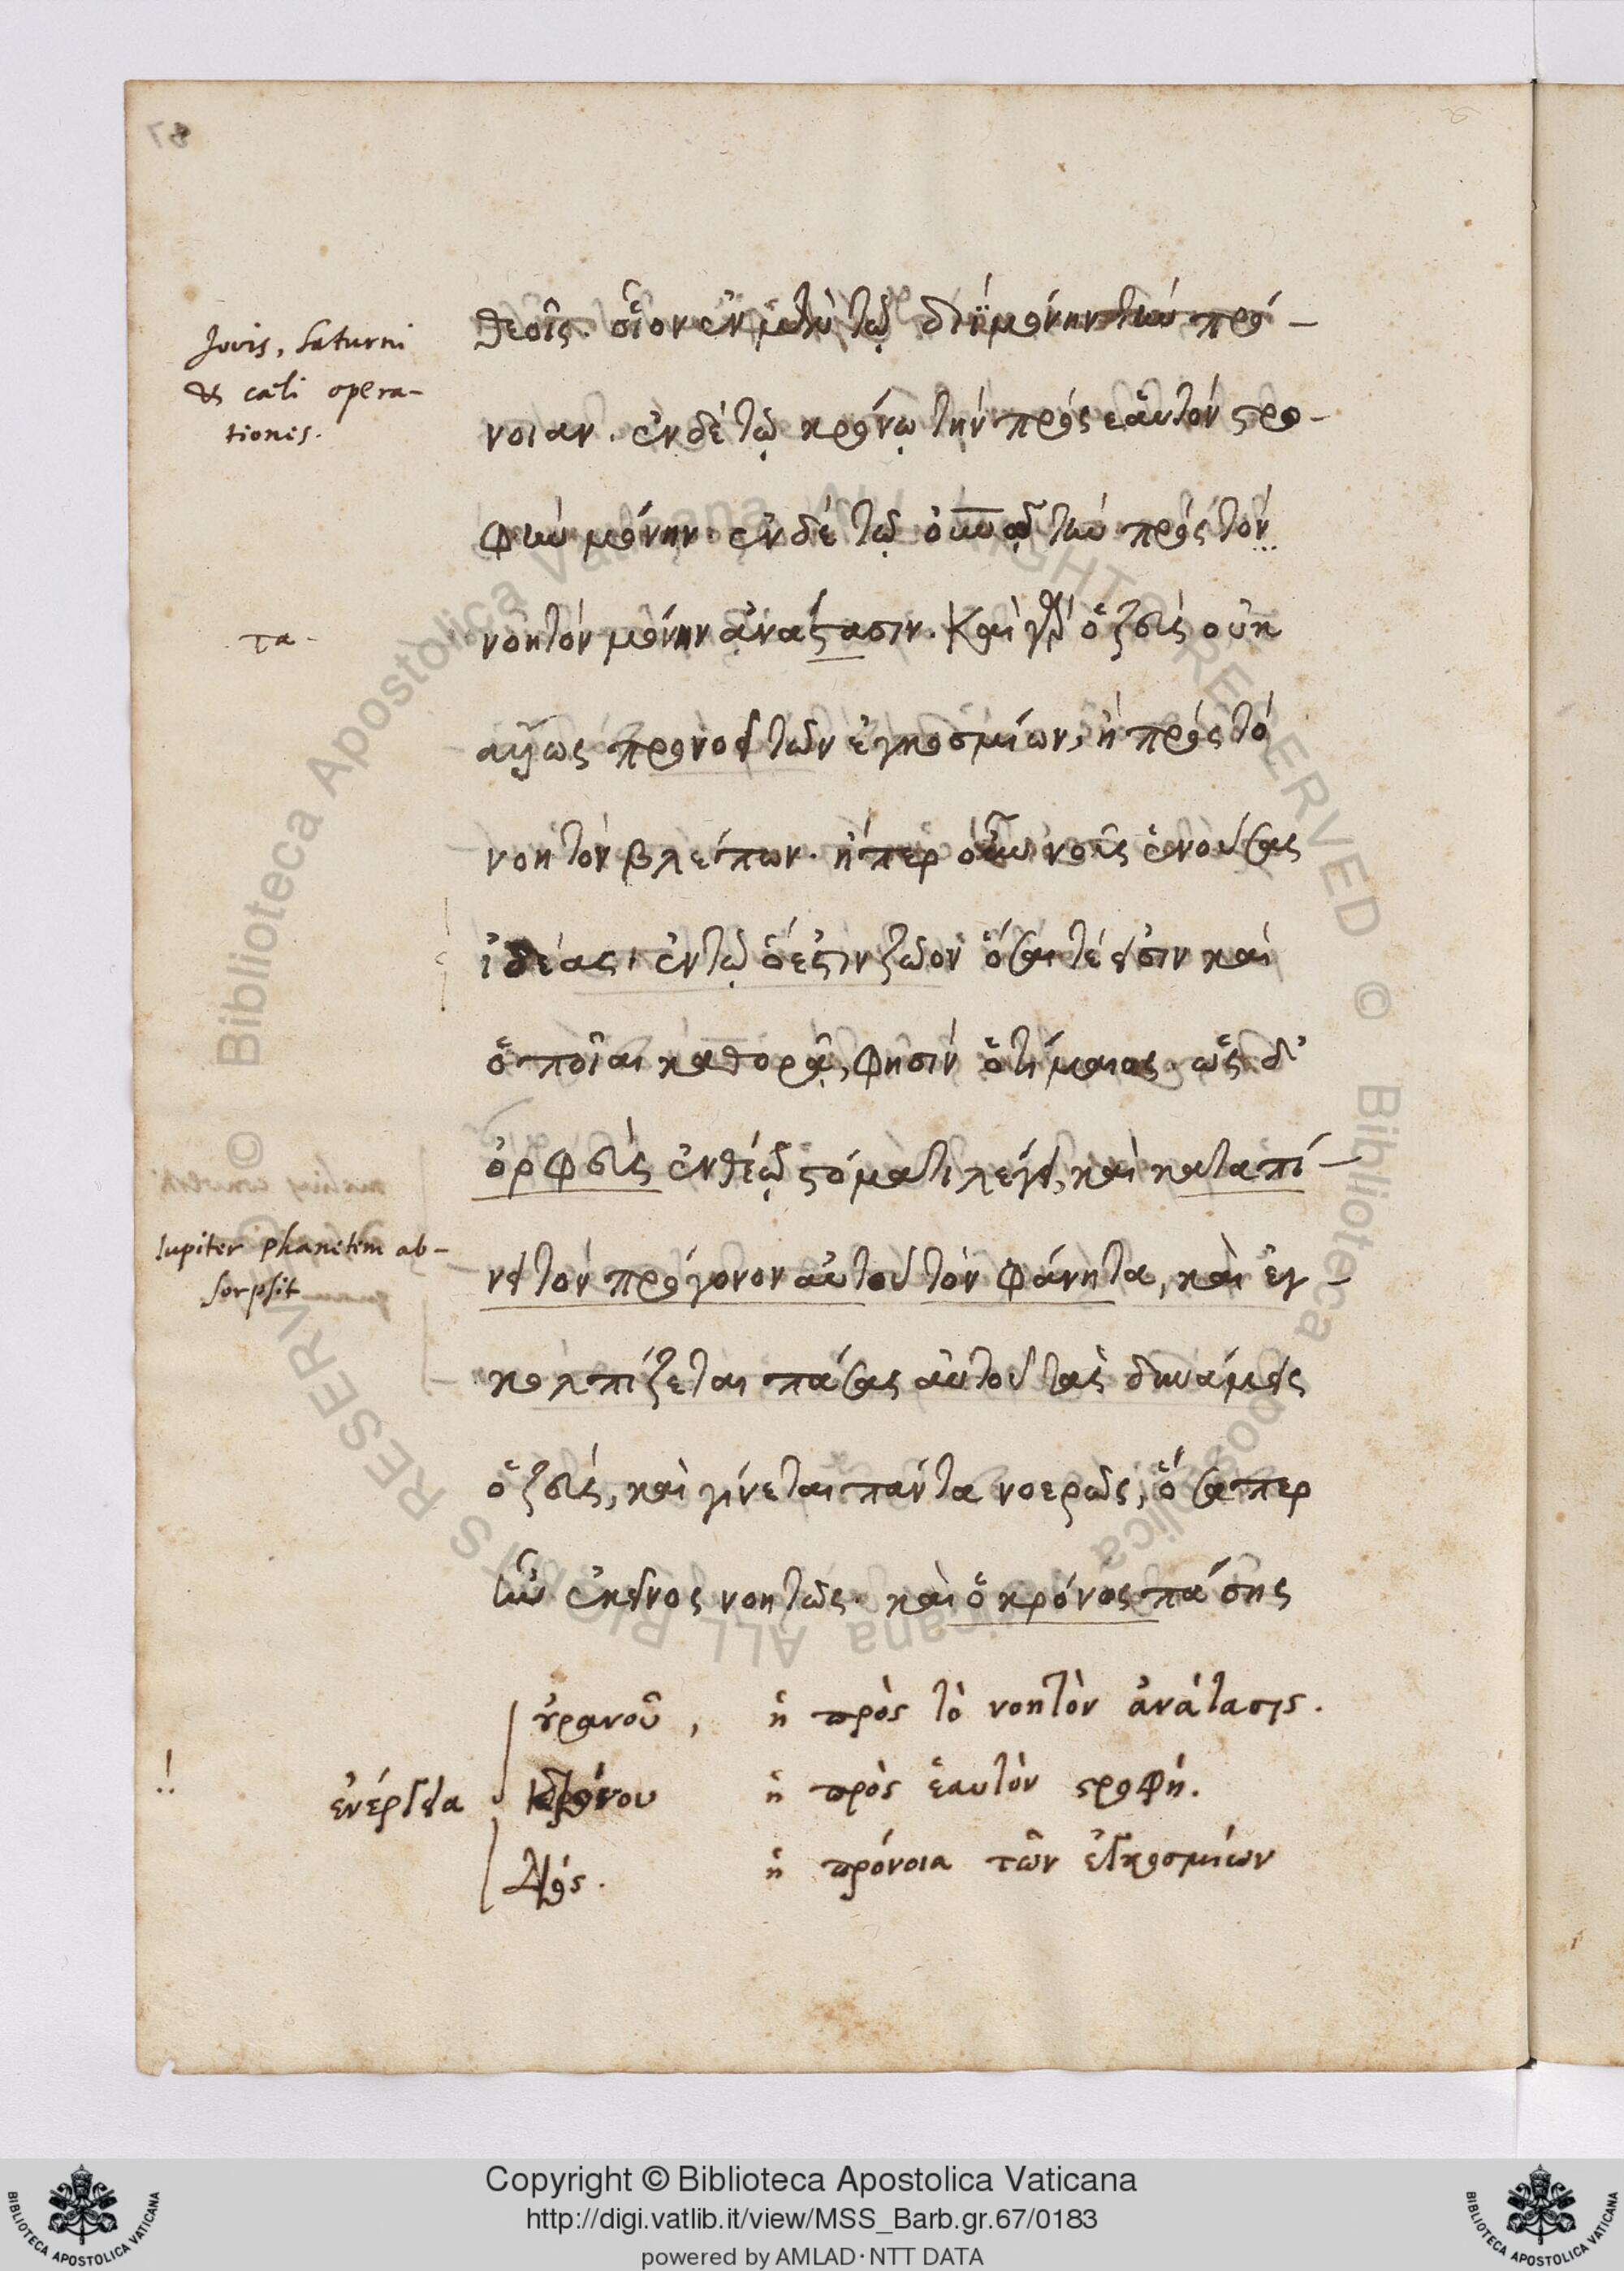 Jovis, Saturni
& cæli opera-
tiones.
θεοῖς. οἷον ἐν μὲν τῷ διῒ μόνην τὴν πρό-
νοιαν. ἐν δὲ τῷ κρόνῳ τὴν πρὸς ἑαυτὸν στρο-
φὴν μόνην. ἐν δὲ τῷ οὐνῷ τὴν πρὸς τὸν
νοητὸν μόνην ἀνάστασιν. Καὶ γὰρ ὁ ζεὺς οὐκ
τα-
ἄλλως προνοεῖ τῶν ἐγκοσμίων, ἢ πρὸς τὸ
νοητὸν βλέπων. ᾗπερ οὖν νοῦς ἐνούσας
ἰδέας, ἐν τῷ ὅ ἐστιν ζῶον ὅσαι τέ εἰσιν καὶ
ὁποῖαι καθορᾷ, φησὶν ὁ τίμαιος. ὡς δ'
ὀρφεὺς ἐνθέῳ στόματι λέγει, καὶ καταπί-
νει τὸν πρόγονον αὐτοῦ τὸν φάνητα, καὶ ἐγ-
Iupiter Phanetem ab-
sorpsit
κολπίζεται πάσας αὐτοῦ τὰς δυνάμεις
ὁ ζεὺς, καὶ γίνεται πάντα νοερῶς, ὅσαπερ
ἦν ἐκεῖνος νοητῶς. καὶ ὁ κρόνος πάσης
οὐρανοῦ, ἡ πρὸς τὸ νοητὸν ἀνάτασις.
ἐνέργεια Κρόνου ἡ πρὸς ἑαυτὸν στροφή.
Διός. ἡ πρόνοια τῶν ἐγκοσμίων
Copyright © Biblioteca Apostolica Vaticana
http://digi.vatlib.it/view/MSS_Barb.gr.67/0183
powered by AMLAD·NTT DATA